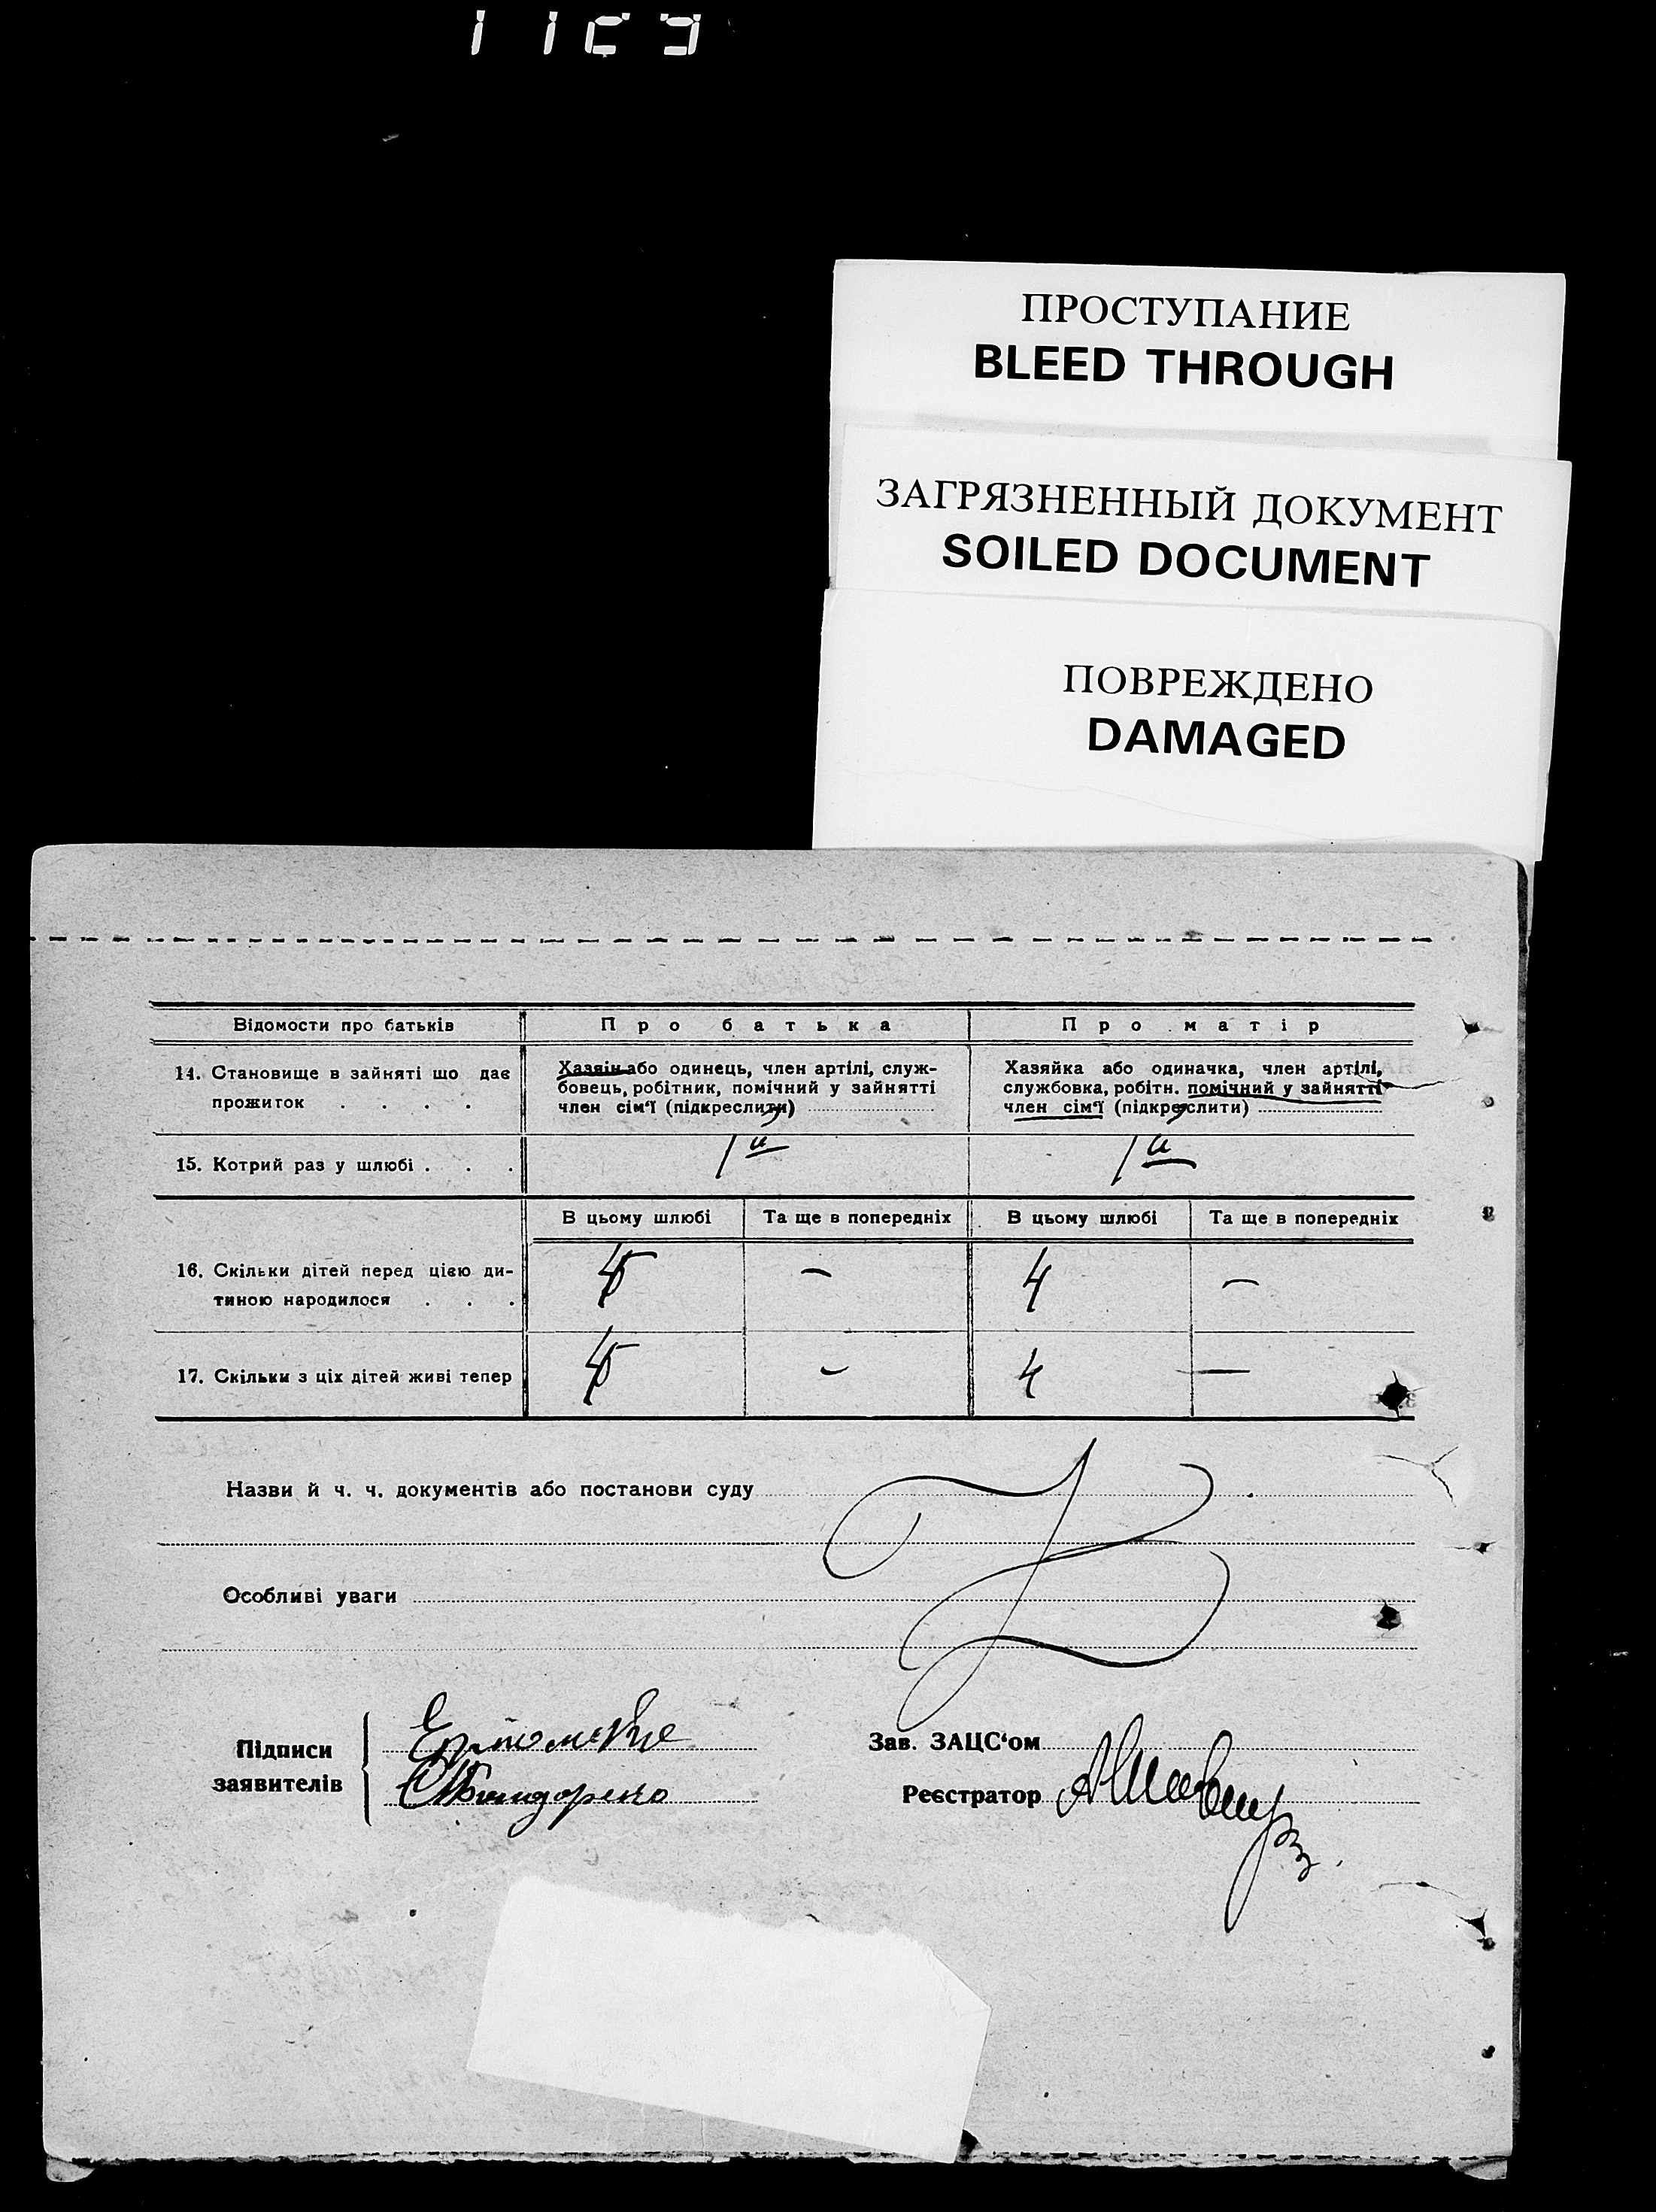 ПРОСТУПАНИЕ
BLEED THROUGH
ЗАГРЯЗНЕННЫЙ ДОКУМЕНТ
SOILED DOCUMENT
ПОВРЕЖДЕНО
DAMAGED
Відомости про батьків
Про батька
Про матір
14. Становище в зайняті що дає
прожиток . . . .
Хазяін або одинець, член артілі, служ-
бовець, робітник, помічний у зайнятті
член сім'ї (підкреслити)
Хазяйка або одиначка, член артілі,
службовка, робітн. помічний у зайнятті
член сім'ї (підкреслити)
15. Котрий раз у шлюбі . . .
1й
1й
В цьому шлюбі
Та ще в попередніх
В цьому шлюбі
Та ще в попередніх
16. Скільки дітей перед цією ди-
тиною народилося . . .
–
4
–
17. Скільки з ціх дітей живі тепер
–
4
–
Назви й ч. ч. документів або постанови суду
Особливі уваги
Підписи
заявителів
Зав. ЗАЦС'ом
Реєстратор